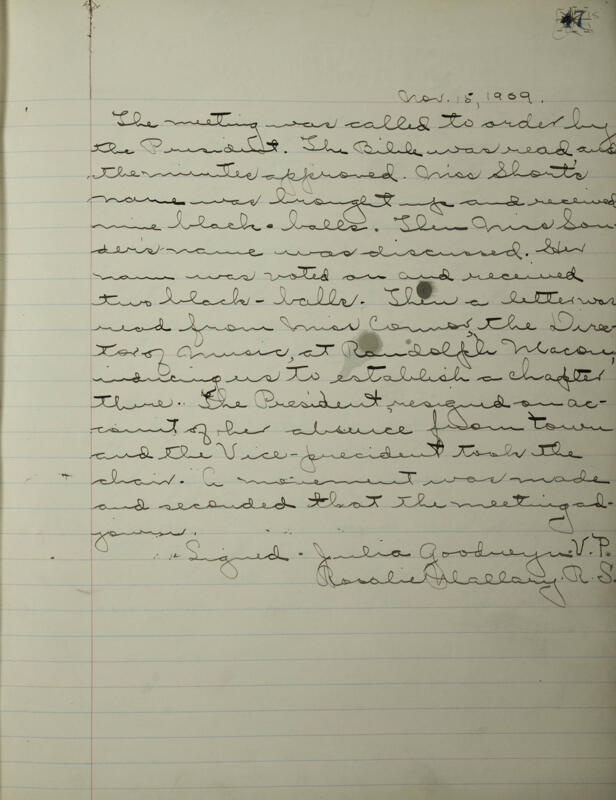 47
Nov. 15, 1909.
The meeting was called to order by
the President. The Bible was read, and
the minutes approved. Miss Short's
name was brought up and received
nine black-balls. Then Miss Soun-
der's name was discussed. Her
name was voted on and received
two black-balls. Then a letter was
read from Miss Connor, the Direc
tor of Music, at Randolph Macon,
inducing us to establish a chapter
there. The President, resigned on ac-
count of her absence from town
and the Vice-president took the
chair. A movement was made
and seconded that the meeting ad-
journ.
Signed - Julia Goodwyn V.P.
Rosalie Mallary. R.S.